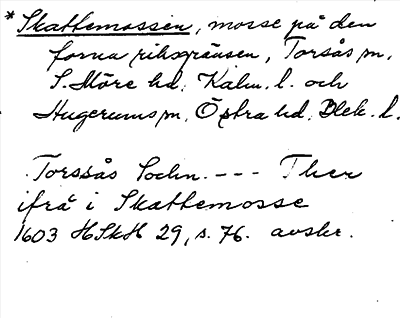 *Skattemossen, mosse på den
forna riksgränsen, Torsås sn,
S. Möre hd, Kalm. l. och
Hugerums sn, Östra hd, Blek. l.
Torssås Sochn. --- Ther
ifrå i Skattemosse
1603 HSkH 29, s. 76. avskr.